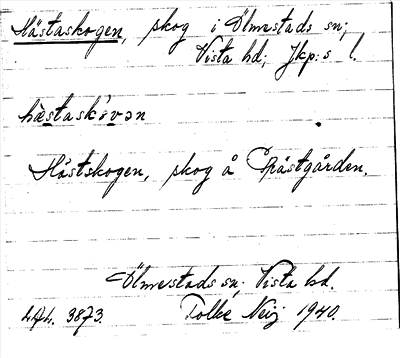 Hästaskogen, skog i Ölmestads sn;
Vista hd; Jkp:s l.
hästaskɷvən
Hästskogen, skog å Prästgården.
Ölmestads sn; Vista hd.
4872. 3873. Folke Neij 1940.